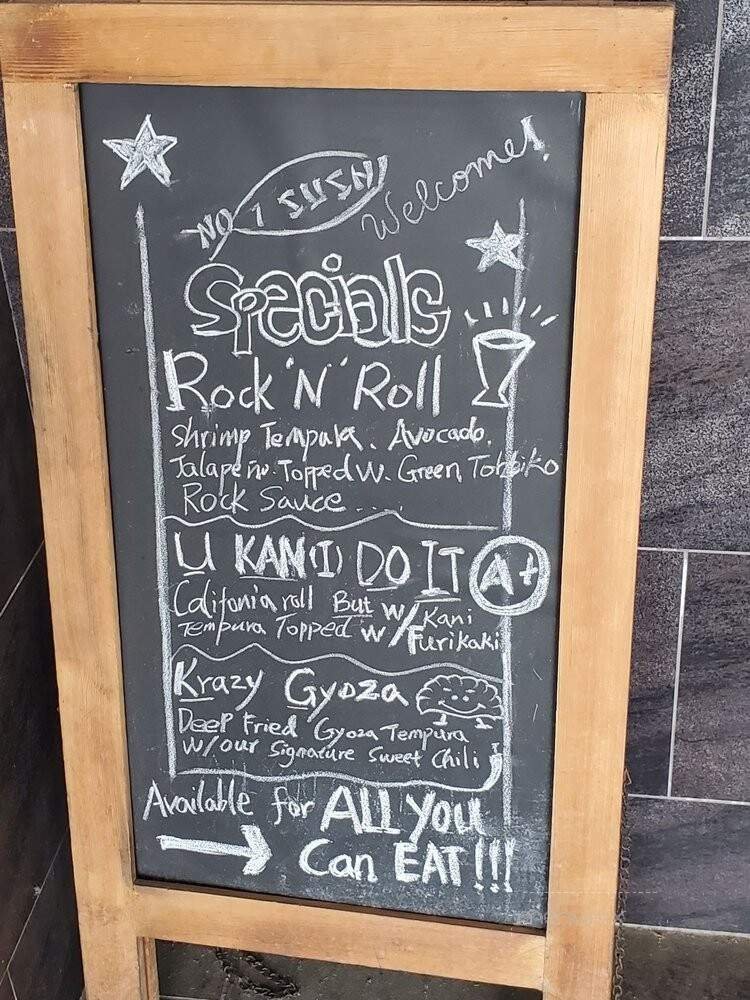 NO 1 SUSHI
Welcome!
Specials
Rock 'N' Roll
Shrimp Tempura. Avocado.
Jalapeño. Topped W. Green Tobbiko
Rock Sauce ....
U KAN(I) DO IT A+
Califonia roll But w/ Kani
Tempura Topped w/ Furikaki
Krazy Gyoza
Deep Fried Gyoza Tempura
w/our Signature Sweet Chili
Available for ALL YOU
Can EAT!!!